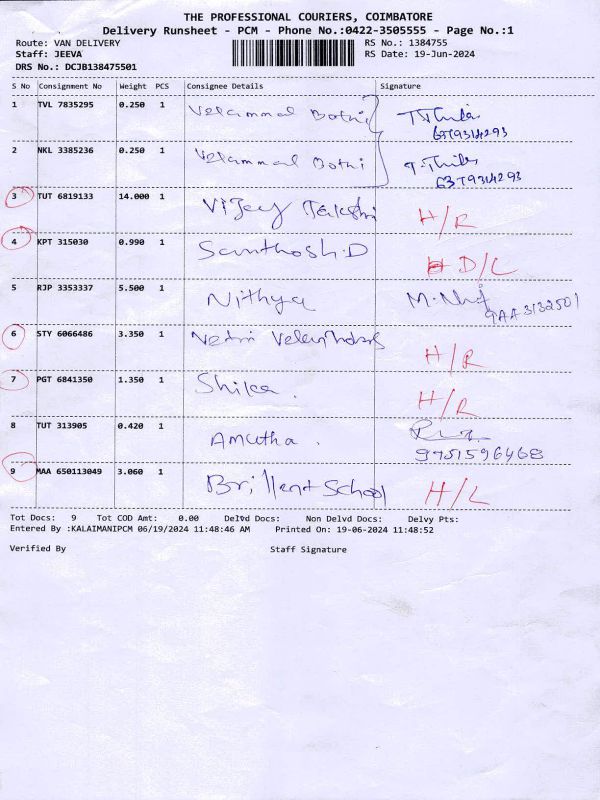 THE PROFESSIONAL COURIERS, COIMBATORE
Delivery Runsheet - PCM - Phone No.:0422-3505555 - Page No.:1
Route: VAN DELIVERY RS No.: 1384755
Staff: JEEVA RS Date: 19-Jun-2024
DRS No.: DCJB138475501
S No Consignment No Weight PCS Consignee Details Signature
1 TVL 7835295 0.250 1 Velammal Bothi
2 NKL 3385236 0.250 1 Velammal Bothi
3 TUT 6819133 14.000 1 Vijay H/R
4 KPT 315030 0.990 1 Santhosh.D D/L
5 RJP 3353337 5.500 1 Nithya
6 STY 6066486 3.350 1 H/R
7 PGT 6841350 1.350 1 Shika. H/R
8 TUT 313905 0.420 1 Amutha.
9751596468
9 MAA 650113049 3.060 1 Brillent School H/L
Tot Docs: 9 Tot COD Amt: 0.00 Delvd Docs: Non Delvd Docs: Delvy Pts:
Entered By :KALAIMANIPCM 06/19/2024 11:48:46 AM Printed On: 19-06-2024 11:48:52
Verified By Staff Signature